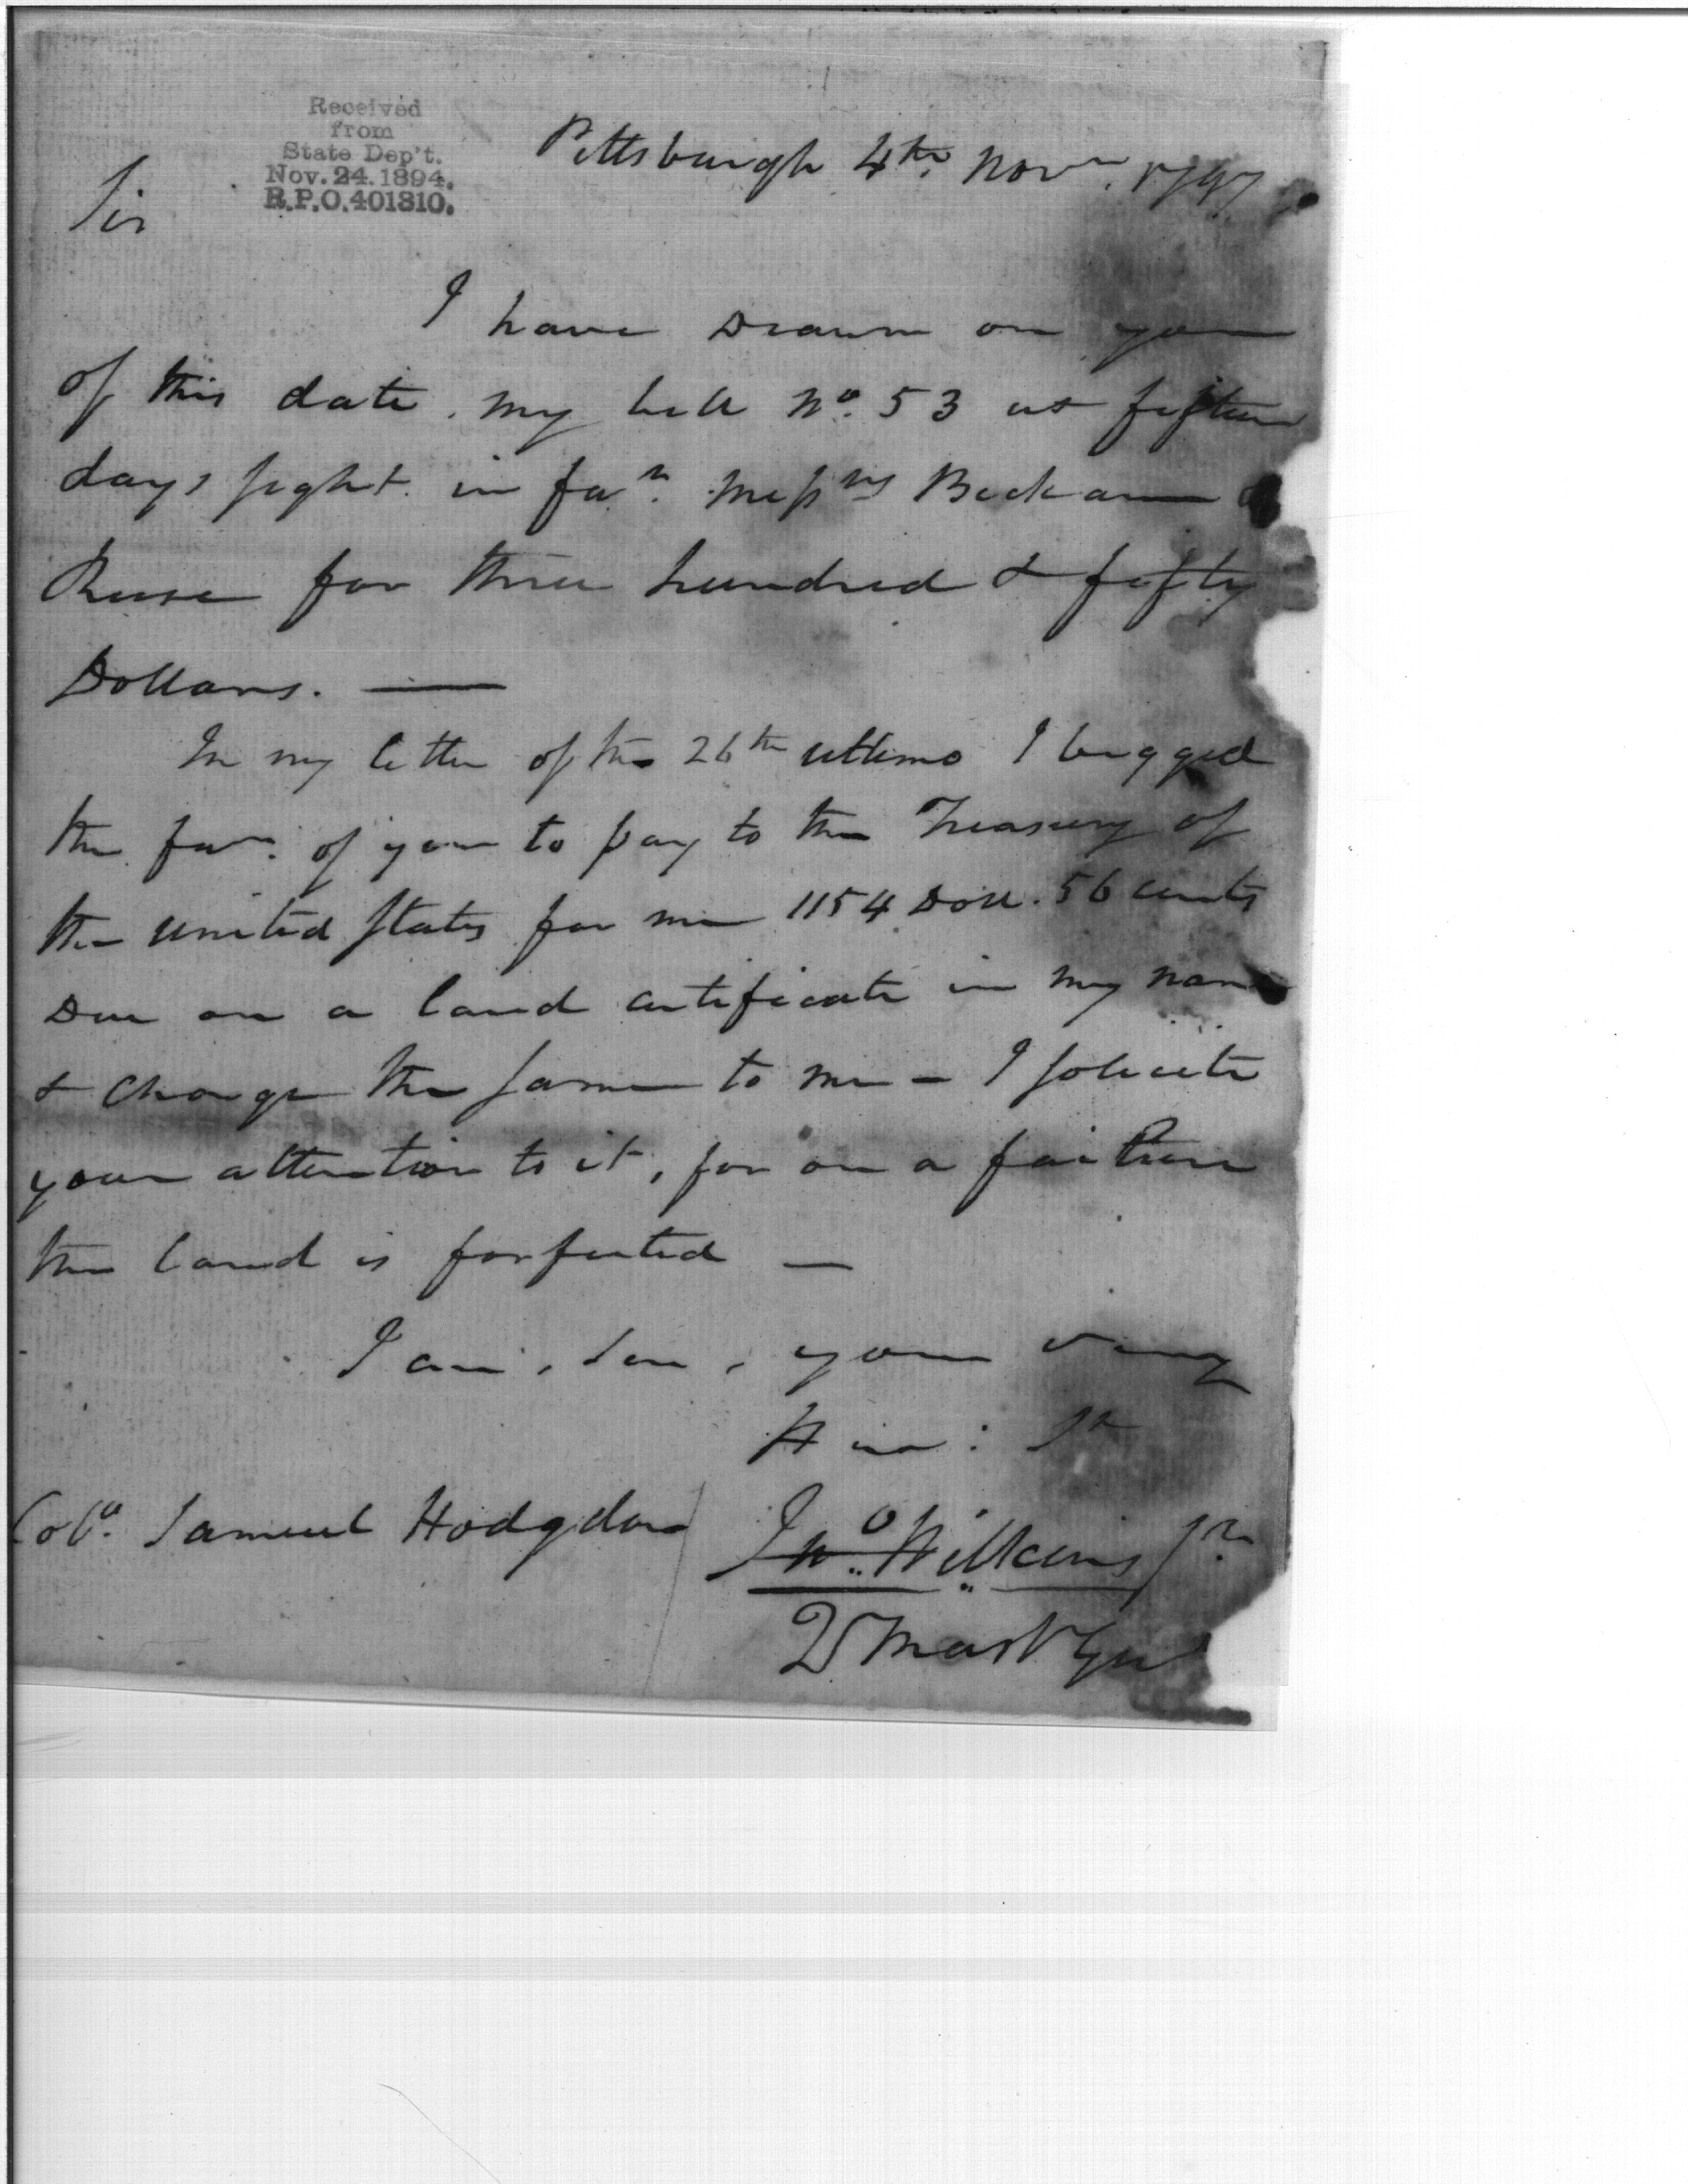 Received
from
State Dep't.
Nov. 24. 1894.
R.P.O. 401310.
Pittsburgh 4th. Novr. 1797
Sir
I have Drawn on you
of this date my bill No. 53 at fifteen
days sight in favr. Messrs Beckam &
Reese for three hundred & fifty
Dollars. —
In my letter of the 26th ultimo I begged
the favr. of you to pay to the Treasury of
the United States for me 1154 Doll. 56 cents
Due on a land certificate in my name
& charge the same to me – I solicite
your attention to it, for on a failure
the land is forfeited —
I am, Sir, your very
Hum: St
Colo. Samuel Hodgdon
Jno. Wilkins Jr.
Q Mastr Gen